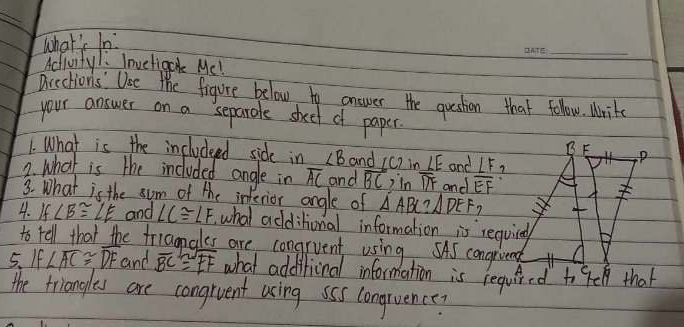 What's In:
DATE:
Activity 1: Invetigate Me!
Directions: Use the figure below to answer the question that follow. Write
your answer on a separate sheet of paper.
1. What is the included side in ∠B and ∠C? in ∠E and ∠F?
2. What is the included angle in AC and BC? in DF and EF
3. What is the sum of the interior angle of △ABC? △DEF?
4. If ∠B ≅ ∠E and ∠C ≅ ∠F, what additional information is required
to tell that the triangles are congruent using SAS congruence
5. If ∠AC ≅ DF and BC ≅ EF what additional information is required to tell that
the triangles are congruent using SSS congruence?
B E D
A C